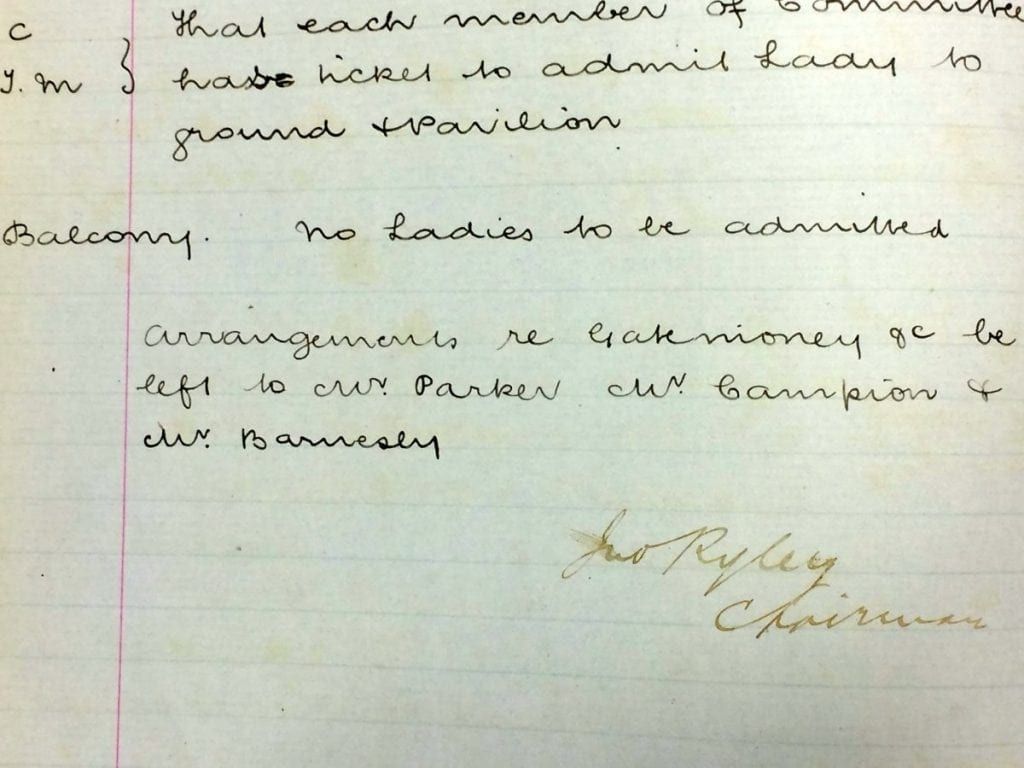 C
T. M } That each member of Committee
have ticket to admit Lady to
ground & Pavilion
Balcony. No Ladies to be admitted
Arrangements re Gatemoney &c be
left to Mr. Parker Mr. Campion &
Mr. Barnesly
Jno Ryley
Chairman